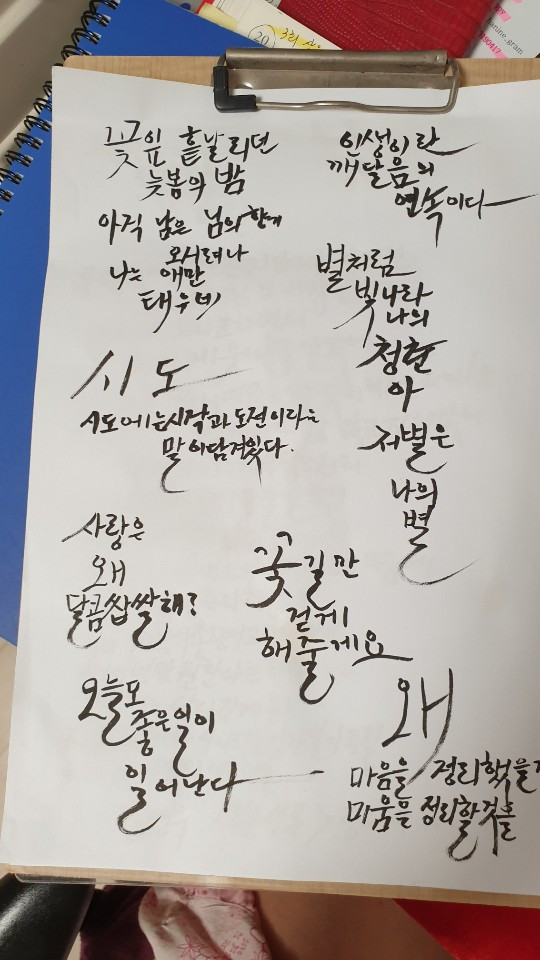 anine_gram
20
3회
꽃잎 흩날리던
늦봄의 밤
아직 남은 님의 향기
오시려나
나는 애만
태우네
인생이란
깨달음의
연속이다
별처럼
빛나라
나의
청춘
아
저별은
나의
별
시도
시도에는시작과도전이라는
말이담겨있다.
사랑은
왜
달콤쌉쌀해?
꽃길만
걷게
해줄게요
오늘도
좋은일이
일어난다
왜
마음을 정리했을까
미움을 정리할것을